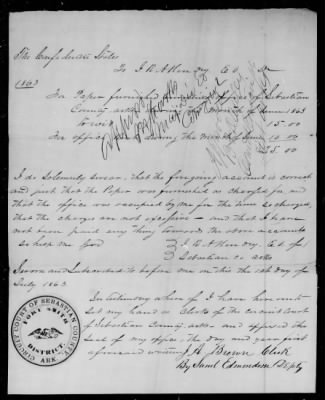 The Confederate States
To J. R. A Kendry, Ed. Dr
1863
For Paper furnished office of Sebastian
County arks the month of June 1863
to wit 15.00
For office during the month of June 10.00
25.00
I do Solemnly Swear, that the foregoing account is correct
and just that the Paper was furnished as charged for and
that the office was occupied by me for the time so charged,
that the charges are not excessive - and that I have
not been paid any thing towards the above accounts
so help me God
Sebastian co arks
Sworn and Subscribed to before me on this the day of
July 1863
In testimony where of I have here unto
set my hand as Clerk of the circuit Court
of Sebastian County arks and affixed the
seal of my office the day and year first
aforesaid written J. H. Brown Clerk
By Saml Edmondson Dpty
CIRCUIT COURT OF SEBASTIAN COUNTY
FORT SMITH
DISTRICT.
ARK.